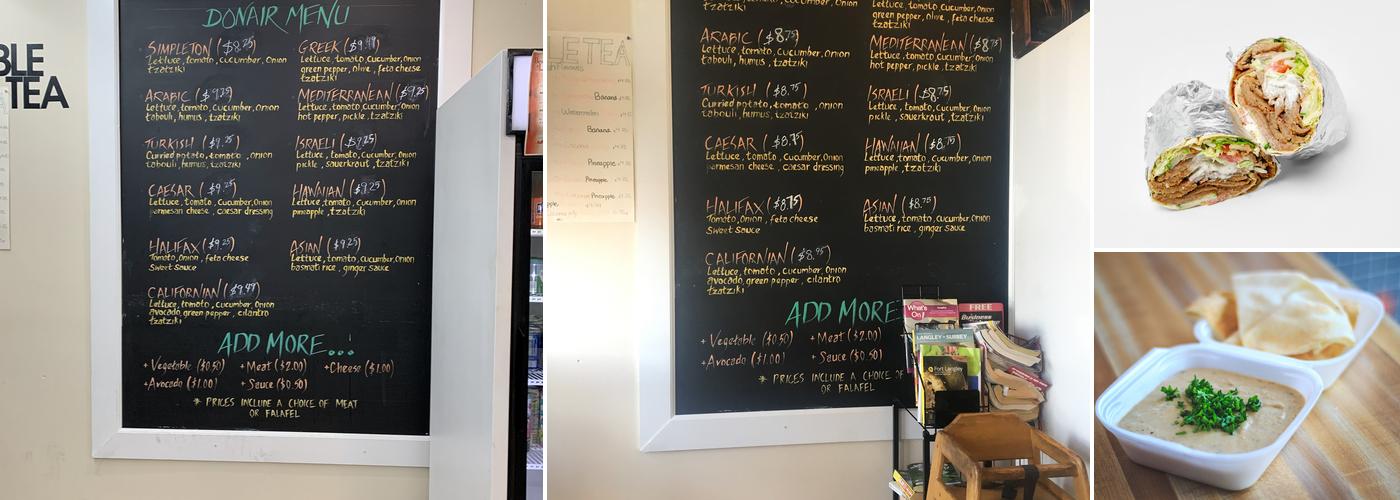 BLE
TEA
DONAIR MENU
SIMPLETON ($8.25)
Lettuce, tomato, cucumber, onion
tzatziki
GREEK ($9.49)
Lettuce, tomato, cucumber, onion
green pepper, olive, feta cheese
tzatziki
ARABIC ($9.25)
Lettuce, tomato, cucumber, onion
tabouli, humus, tzatziki
MEDITERRANEAN ($9.25)
Lettuce, tomato, cucumber, onion
hot pepper, pickle, tzatziki
TURKISH ($9.25)
Curried potato, tomato, onion
tabouli, humus, tzatziki
ISRAELI ($9.25)
Lettuce, tomato, cucumber, onion
pickle, sauerkraut, tzatziki
CAESAR ($9.25)
Lettuce, tomato, cucumber, onion
parmesan cheese, caesar dressing
HAWAIIAN ($9.25)
Lettuce, tomato, cucumber, onion
pineapple, tzatziki
HALIFAX ($9.25)
Tomato, onion, feta cheese
Sweet Sauce
ASIAN ($9.25)
Lettuce, tomato, cucumber, onion
basmati rice, ginger sauce
CALIFORNIAN ($9.49)
Lettuce, tomato, cucumber, onion
avocado, green pepper, cilantro
tzatziki
ADD MORE...
+ Vegetable ($0.50) + Meat ($2.00) + Cheese ($1.00)
+ Avocado ($1.00) + Sauce ($0.50)
* PRICES INCLUDE A CHOICE OF MEAT
OR FALAFEL
LE TEA
Banana
Watermelon
Banana
Pineapple
Pineapple
Pineapple
Lettuce, tomato, cucumber, onion
tzatziki
Lettuce, tomato, cucumber, onion
green pepper, olive, feta cheese
tzatziki
ARABIC ($8.75)
Lettuce, tomato, cucumber, onion
tabouli, humus, tzatziki
MEDITERRANEAN ($8.75)
Lettuce, tomato, cucumber, onion
hot pepper, pickle, tzatziki
TURKISH ($8.75)
Curried potato, tomato, onion
tabouli, humus, tzatziki
ISRAELI ($8.75)
Lettuce, tomato, cucumber, onion
pickle, sauerkraut, tzatziki
CAESAR ($8.75)
Lettuce, tomato, cucumber, onion
parmesan cheese, caesar dressing
HAWAIIAN ($8.75)
Lettuce, tomato, cucumber, onion
pineapple, tzatziki
HALIFAX ($8.75)
Tomato, onion, feta cheese
Sweet Sauce
ASIAN ($8.75)
Lettuce, tomato, cucumber, onion
basmati rice, ginger sauce
CALIFORNIAN ($8.95)
Lettuce, tomato, cucumber, onion
avocado, green pepper, cilantro
tzatziki
ADD MORE
+ Vegetable ($0.50) + Meat ($2.00)
+ Avocado ($1.00) + Sauce ($0.50)
* PRICES INCLUDE A CHOICE OF
OR FALAFEL
What's
On!
FREE
Business
LANGLEY · SURREY
Fort Langley